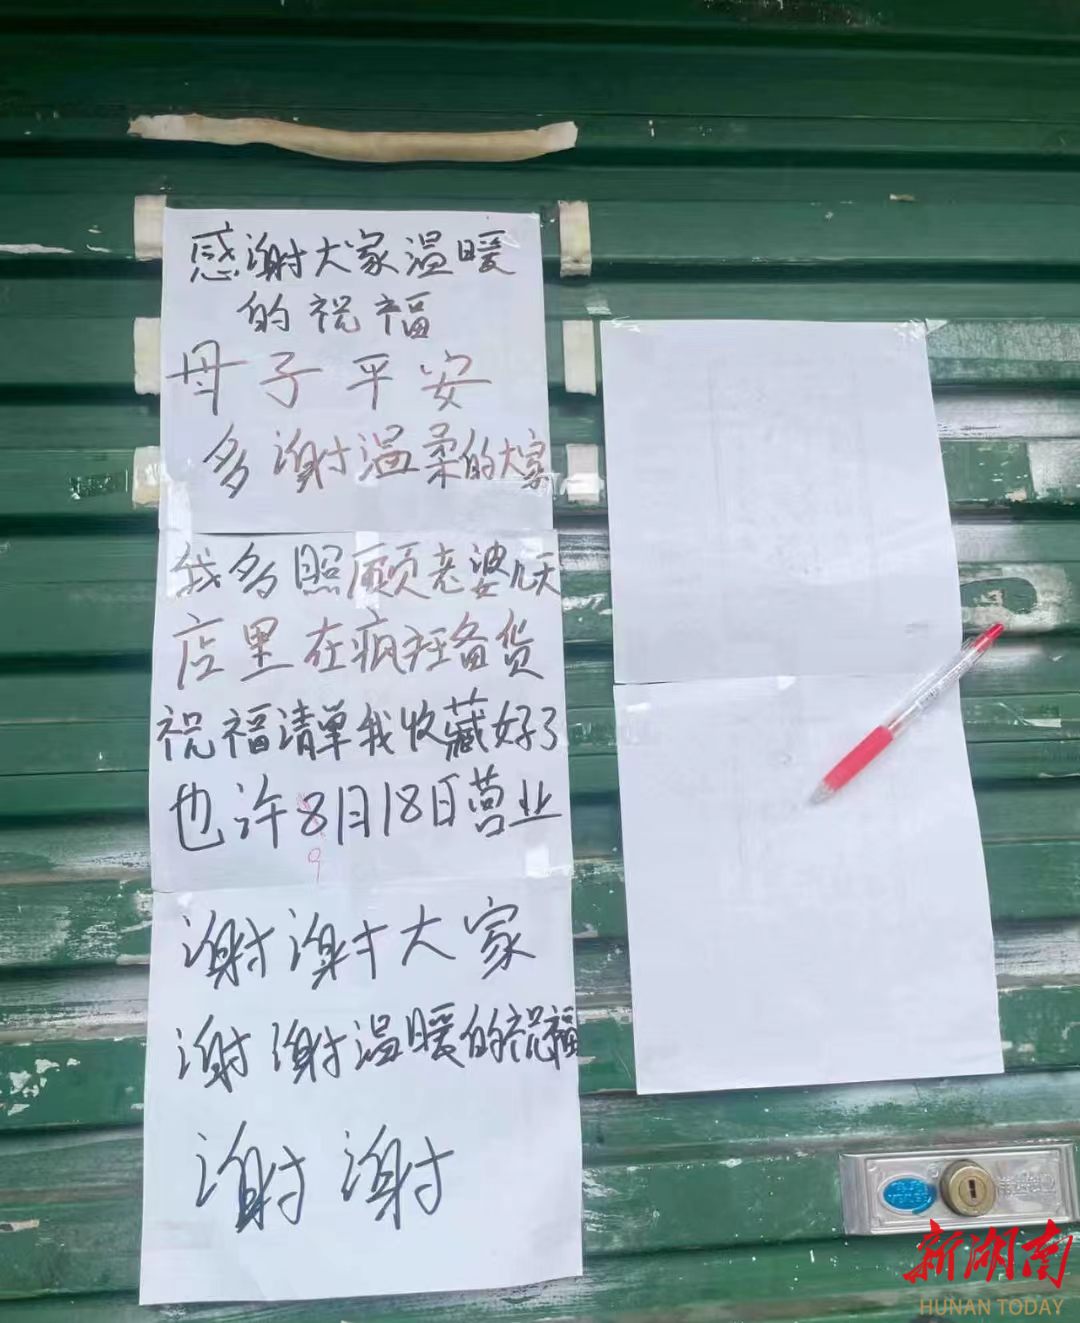 感谢大家温暖
的祝福
母子平安
多谢温柔的大家
我多照顾老婆几天
店里在疯狂备货
祝福清单我收藏好了
也许8月18日营业
9
谢谢大家
谢谢温暖的祝福
谢谢
新湖南
HUNAN TODAY